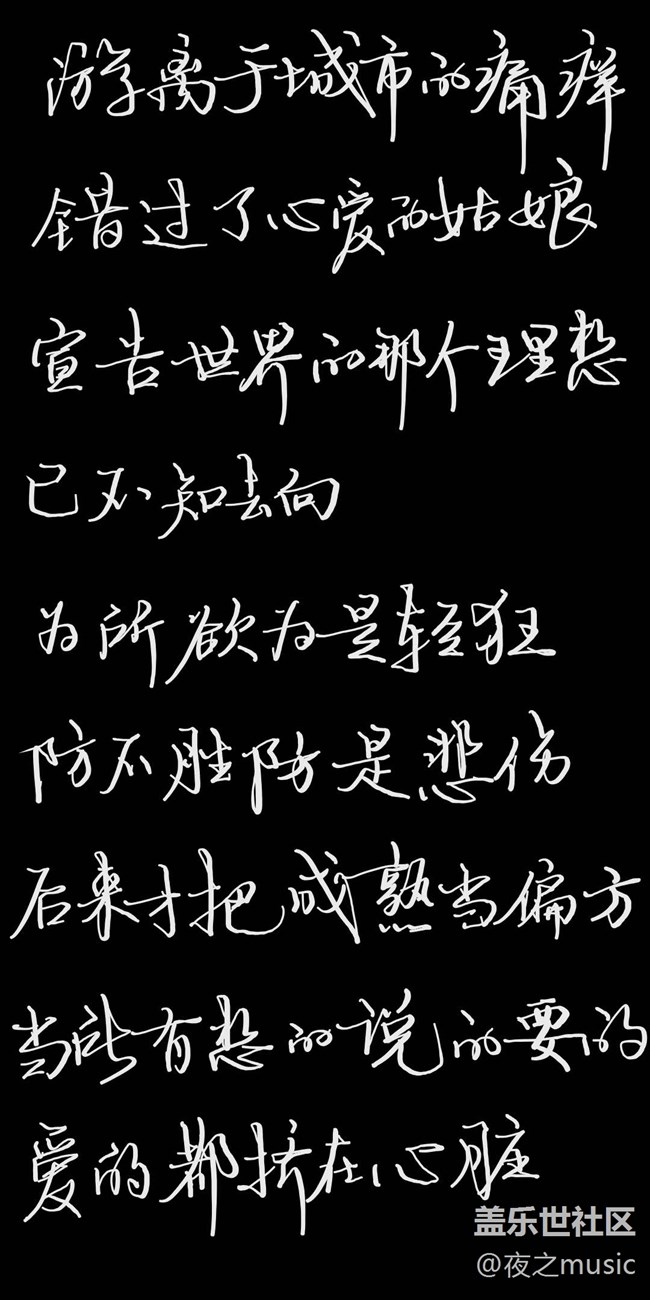 游离于城市的痛痒
错过了心爱的姑娘
宣告世界的那个理想
已不知去向
为所欲为是轻狂
防不胜防是悲伤
后来才把成熟当偏方
当所有想的说的要的
爱的都挤在心脏
盖乐世社区
@夜之music